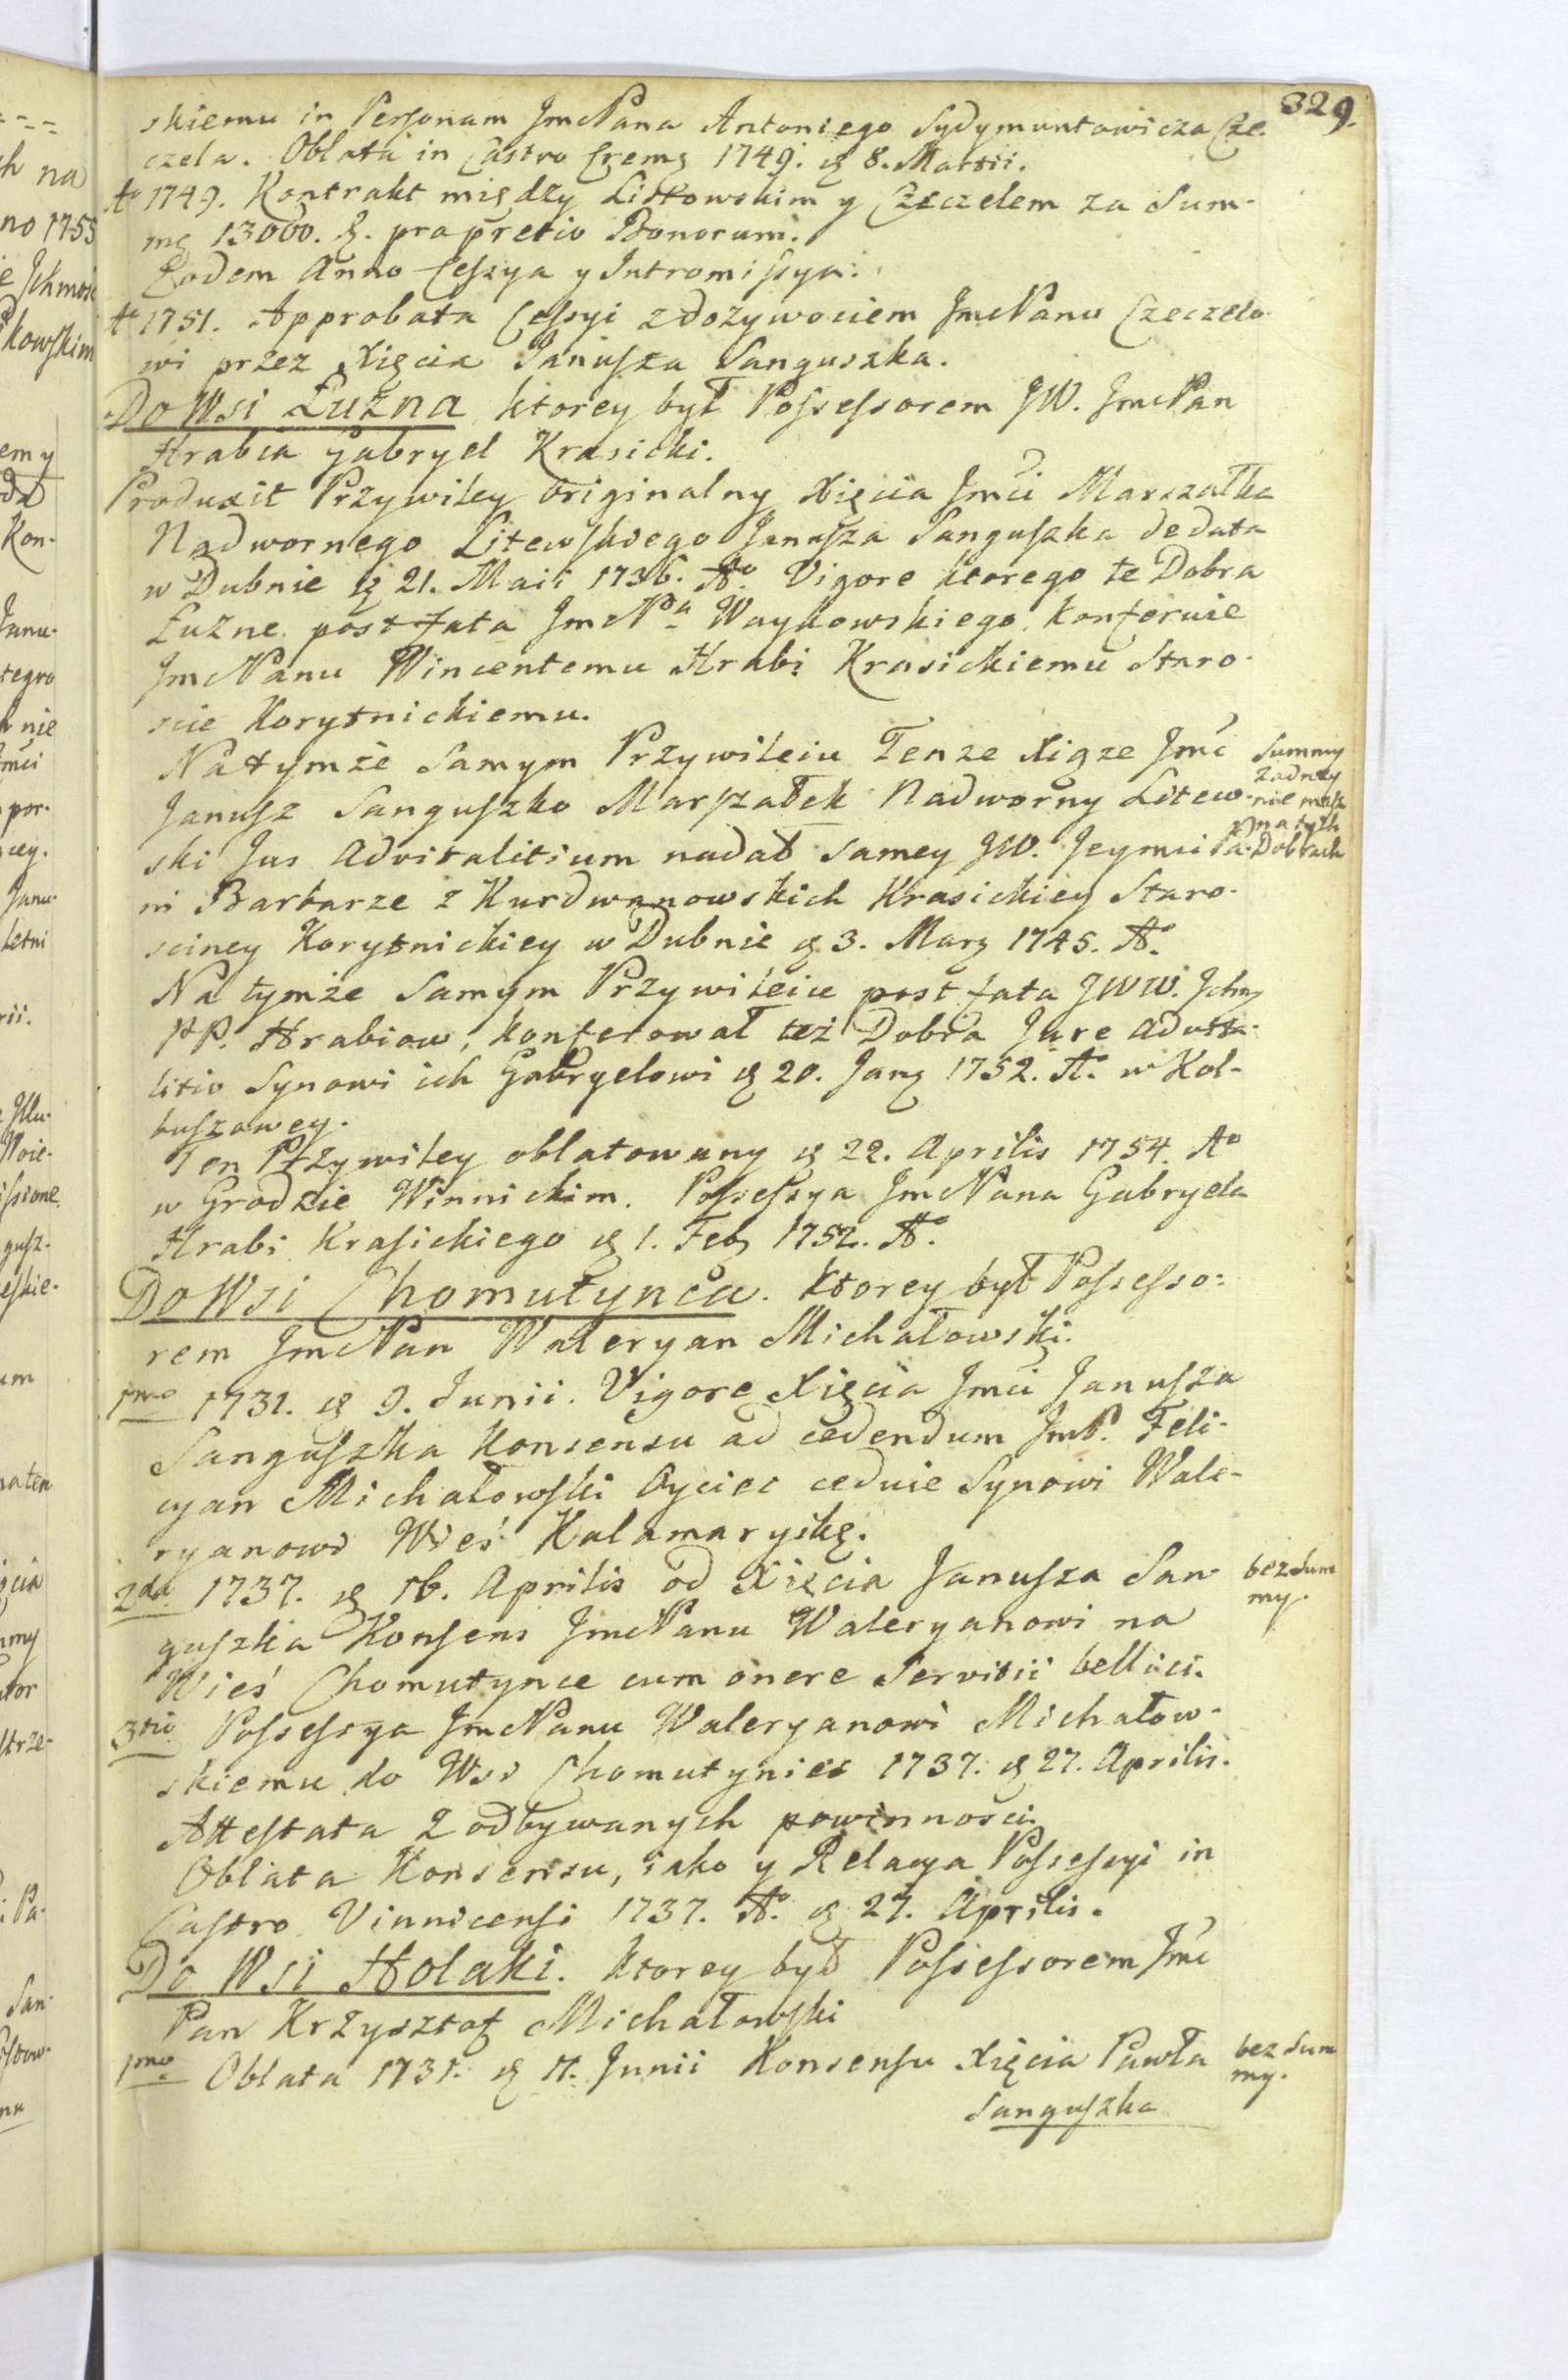 329.
skiemu in Personam JmcPana Antoniego Sydymuntowicza Cze-
czela. Oblata in Castro Crem. 1749. d. 8. Martii.
Aº 1749. Kontrakt między Listowskim y Czeczelem za Sum-
mę 13000. zł. pro pretio Bonorum.
Eodem Anno Cessya y Intromissya.
Aº 1751. Approbata Cessyi z dozywociem JmcPanu Czeczelo-
wi przez Xięcia Janusza Sanguszka.
Do Wsi Łuzna ktorey był Possessorem JW. JmcPan
Hrabia Gabryel Krasicki.
Produxit Przywiley Originalny Xięcia Jmci Marszałka
Nadwornego Litewskiego Janusza Sanguszka de data
w Dubnie d. 21. Maii 1736. Aº. Vigore ktorego te Dobra
Łuzne post fata JmcPª Waykowskiego Konferuie
JmcPanu Wincentemu Hrabi Krasickiemu Staro-
scie Korytnickiemu.
Na tymże Samym Przywileiu Tenze Xiąze Jmć
Janusz Sanguszko Marszałek Nadworny Litew-
ski Jus Advitalitium nadał samey JW. Jeymci Pa-
ni Barbarze z Kurdwanowskich Krasickiey Staro-
sciney Korytnickiey w Dubnie d. 3. Mar. 1745. Aº.
Summy
zadney
nie masz
na tych
Dobrach
Na tymże Samym Przywileiu post fata JWW. Jchm.
PP. Hrabiow, konferował też Dobra Jure advita-
litio Synowi ich Gabryelowi d. 20. Jan. 1752. Aº. w Kol-
buszowey.
Ten Przywiley oblatowany d. 22. Aprilis 1754. Aº
w Grodzie Winnickim. Possessya JmcPana Gabryela
Hrabi Krasickiego d. 1. Feb. 1752. Aº.
Do Wsi Chomutynca. ktorey był Possesso-
rem JmcPan Waleryan Michałowski.
1mo 1731. d. 9. Junii. Vigore Xięcia Jmci Janusza
Sanguszka Konsensu ad cedendum JmP. Feli-
cyan Michałowski Oyciec ceduie Synowi Wale-
ryanowi Wieś Kalamaryskę.
2do 1737. d. 16. Aprilis od Xięcia Janusza San-
guszka Konsens JmcPanu Waleryanowi na
Wieś Chomutynce cum onere Servitii bellici.
bez Sum
my.
3tio Possessya JmcPanu Waleryanowi Michałow-
skiemu do Wsi Chomutyniec 1737. d. 27. Aprilis.
Attestata z odbywanych powinności.
Oblata Konsensu, iako y Relacya Possessyi in
Castro Vinnicensi 1737. Aº. d. 27. Aprilis.
Do Wsi Holaki. ktorey był Possessorem Jmć
Pan Krzysztof Michałowski
1mo Oblata 1731. d. 11. Junii Konsensu Xięcia Pawła
bez Sum
my.
Sanguszka